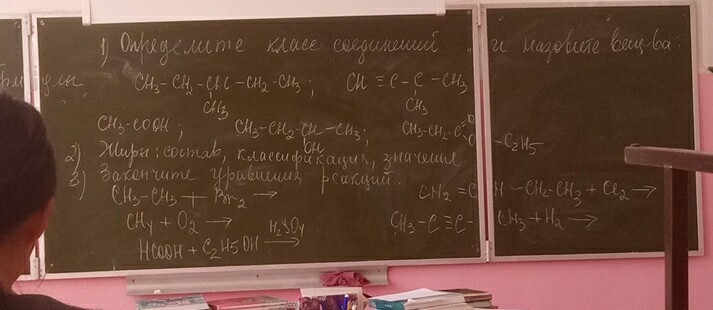 1) Определите класс соединений и назовите вещ-ва:
CH3-CH2-CH-CH2-CH3; CH≡C-C-CH3
CH3 CH3
CH3-COOH; CH3-CH2-CH-CH3; CH3-CH2-C O
OH O-C2H5
2) Жиры: состав, классификация, значения
3) Закончите уравнения реакций:
CH3-CH3 + Br2 → CH2=CH-CH2-CH3 + Cl2 →
CH4 + O2 → CH3-C≡C-CH3 + H2 →
HCOOH + C2H5OH H2SO4 →